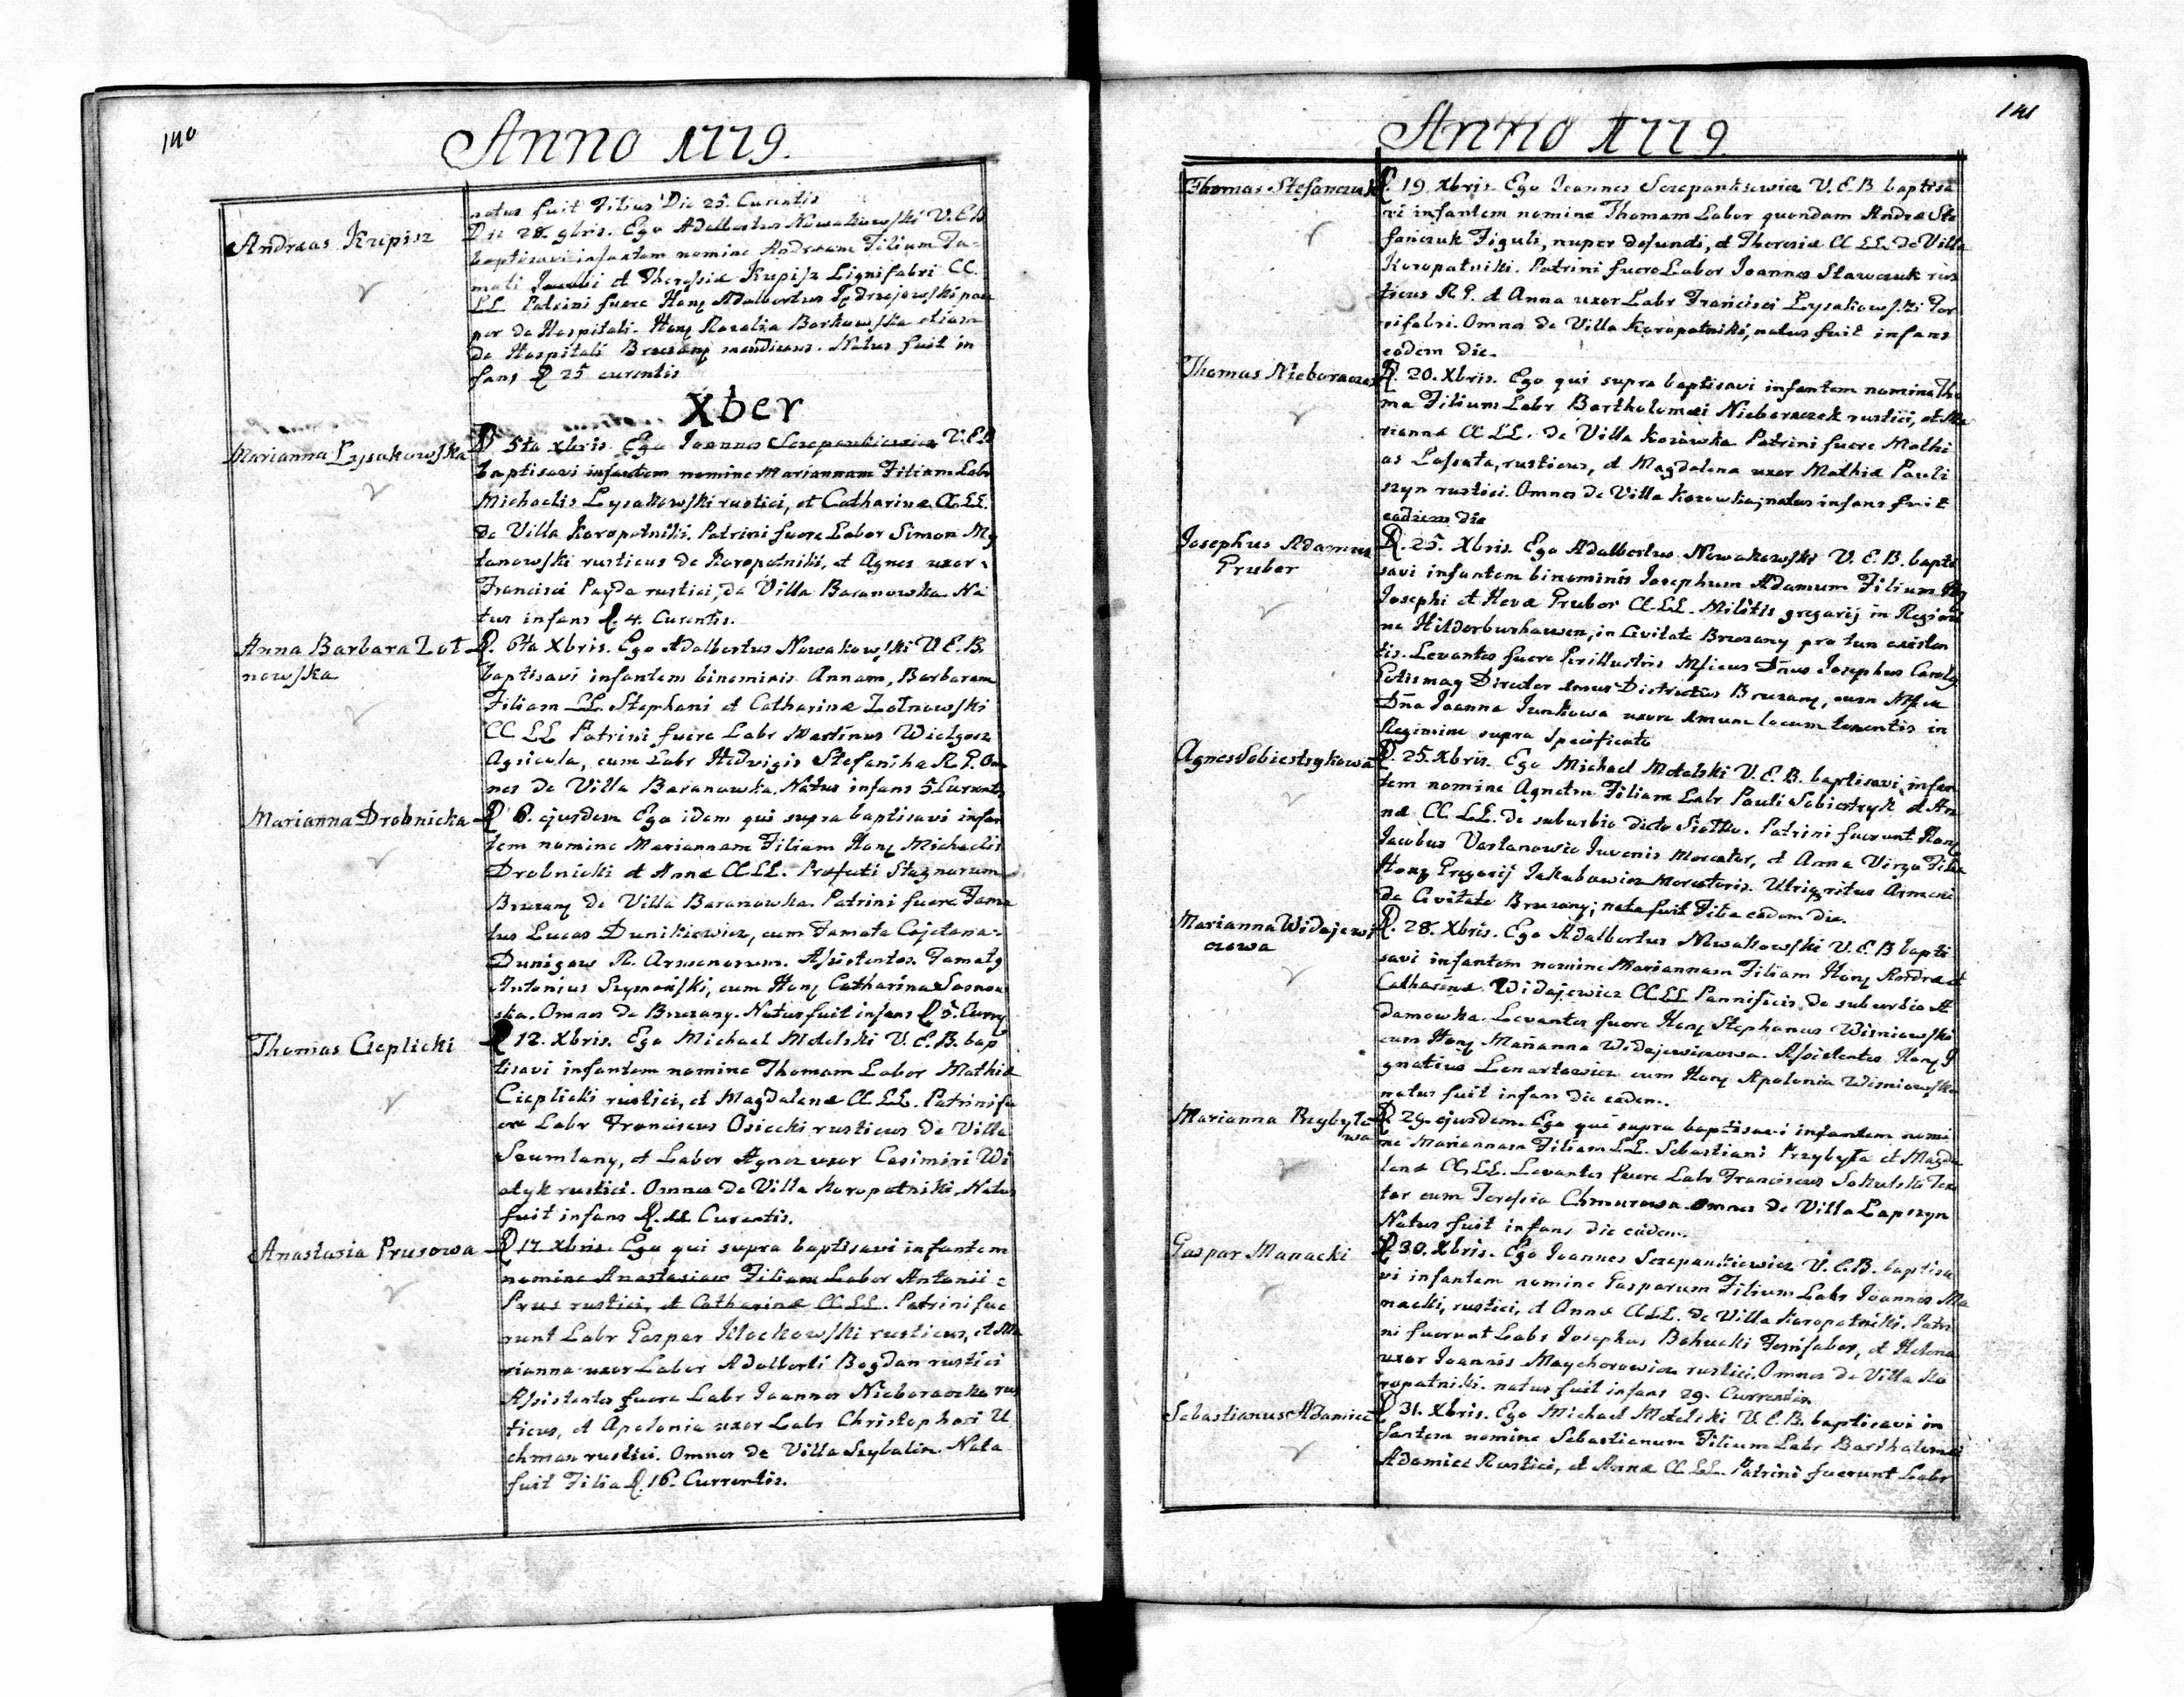 140
Anno 1779.
natus fuit Filius Die 25. Curentis
Andreas Krepisz
Die 28. 9bris. Ego Adalbertus Nowakowski V.E.B
baptisavi infantem nomine Andream Filium Fa-
mati Jacobi et Theressiæ Krepisz Lignifabri CC.
LL Patrini fuere Hon Adalbertus Jędrzejowski pau
per de Hospitali. Hon Rozalia Borkowska etiam
de Hospitali Brzezany mendicans. Natus fuit in
fans D 25 curentis
Xber
Marianna Łysakowska
D 5ta Xbris. Ego Joannes Szczepankiewicz V.E.B
baptisavi infantem nomine Mariannam Filiam Labr
Michaelis Łysakowski rustici, et Catharinæ CC.LL.
de Villa Koropatniki. Patrini fuere Labor Simon My
tanowski rusticus de Koropatniki, et Agnes uxor
Francisci Payda rustici, de Villa Baranowka Na
tus infans D. 4. Curentis.
Anna Barbara Zot
nowska
D. 6ta Xbris. Ego Adalbertus Nowakowski V.E.B.
baptisavi infantem binominis Annam, Barbaram
Filiam LL. Stephani et Catharinæ Zotnowski
CC LL Patrini fuere Labr Martinus Wielgosz
Agricola, cum Labr Hedvigis Stefanika R.G. Om
nes de Villa Baranowka. Natus infans 5. Curentis
Marianna Drobnicka
D 6. ejusdem Ego idem qui supra baptisavi infan
tem nomine Mariannam Filiam Hon Michaelis
Drobnicki et Annæ CC.LL. Præfecti Stagnorum
Brzezany de Villa Baranowka. Patrini fuere Fama
tus Lucas Dunikiewicz, cum Famata Cajetana
Dunigow R. Armenorum. Assistentes. Famaty
Antonius Szymański, cum Hon Catharina Sosnow
ska. Omnes de Brzezany. Natus fuit infans D 5. Curen
Thomas Cieplicki
D 12. Xbris. Ego Michael Motelski V.E.B. bap
tisavi infantem nomine Thomam Labor Mathiæ
Cieplicki rustici, et Magdalenæ CC LL. Patrini fu
ere Labr Franciscus Osiecki rusticus de Villa
Szumlany, et Labor Agnes uxor Casimiri Wi
otyk rustici. Omnes de Villa Koropatniki, Natus
fuit infans D. 11 Curentis.
Anastasia Prusowa
D 17. Xbris. Ego qui supra baptisavi infantem
nomine Anastasiam Filiam Labor Antonii
Prus rustici, et Catharinæ CC LL. Patrini fue
runt Labr Gaspar Klockowski rusticus, et Ma
rianna uxor Labor Adalberti Bogdan rustici
Assistentes fuere Labr Joannes Nieboraczka rus
ticus, et Apolonia uxor Labr Christophori U
chman rustici. Omnes de Villa Szybalin. Nata
fuit Filia D. 16. Currentis.
141
Anno 1779
Thomas Stefanczuk
D. 19. Xbris. Ego Joannes Szczepankiewicz V.E.B baptisa
vi infantem nomine Thomam Labor quondam Andreæ Ste
fańczuk Figuli, nuper defuncti, et Theresiæ CC LL. de Villa
Koropatniki. Patrini fuere Labor Joannes Stawczuk rus
ticus R.G. et Anna uxor Labr Francisci Lysakowski Tor
nifabri. Omnes de Villa Koropatniki, natus fuit infans
eodem die.
Thomas Nieboraczek
D. 20. Xbris. Ego qui supra baptisavi infantem nomine Tho
ma Filium Labr Bartholomæi Nieboraczek rustici, et Ma
riannæ CC LL. de Villa Kozowka Patrini fuere Mathi
as Lassota, rusticus, et Magdalena uxor Mathiæ Pauli
szyn rustici. Omnes de Villa Kozowka, natus infans fuit
eodiem die
Josephus Adamus
Gruber
D. 25. Xbris. Ego Adalbertus Nowakowski V.E.B. bapti
savi infantem binominis Josephum Adamum Filium Hon
Josephi et Hevæ Grubor CC.LL. Militis gregarij in Regimi
ne Hilderburhausen, in Civitate Brzezany pro tun existen
tis. Levantes fuere Perillustris Mficus Dnus Josephus Carol
Gotismag Director Imus Districtûs Brzezany, cum Mfica
Dña Joanna Junkowa uxore Imum locum tenentis in
Regimine supra Specificato
Agnes Sobiestrykowa
D. 25. Xbris. Ego Michael Motelski V.E.B. baptisavi infan
tem nomine Agnetem Filiam Labr Pauli Sobiestryk et An
næ CC. LL. de suburbio dicto Siołko. Patrini fuerunt Hon
Jacobus Vartanowic Juvenis Mercator, et Anna Virgo Filia
Hon Gregorij Jakubowicz Mercatoris. Utriq ritus Armeni
de Civitate Brzezany; nata fuit Filia eadem die.
Marianna Widajewi
czowa
D. 28. Xbris. Ego Adalbertus Nowakowski V.E.B bapti
savi infantem nomine Mariannam Filiam Hon Andreæ et
Catharinæ Widajewicz CC LL Pannificis de suburbio A
damowka. Levantes fuere Hon Stephanus Wisniowski
cum Hon Marianna Widajewiczowa. Assistentes Hon I
gnatius Lenartowicz cum Hon Apolonia Wisniowska
natus fuit infans die eadem.
Marianna Przybyło
wa
D 29. ejusdem. Ego qui supra baptisavi infantem nomi
ne Mariannam Filiam LL. Sebastiani Przybyła et Magda
lenæ CC.LL. Levantes fuere Labr Franciscus Sokulski Tex
tor cum Teressia Chmurowa omnes de Villa Lapszyn
Natus fuit infans die eadem.
Gaspar Manacki
D 30. Xbris. Ego Joannes Szczepankiewicz V.E.B. baptisa
vi infantem nomine Gasparum Filium Labr Joannes Ma
nacki, rustici, et Annæ CC LL. de Villa Koropatniki. Patri
ni fuerunt Labr Josephus Bohucki Fornifaber, et Helena
uxor Joannis Maychorowicz rustici. Omnes de Villa Ko
ropatniki. natus fuit infans 29. Currentis.
Sebastianus Adamiec
D 31. Xbris. Ego Michael Motelski V.E.B. baptisavi in
fantem nomine Sebastianum Filium Labr Bartholomæi
Adamiec Rustici, et Annæ CC LL. Patrini fuerunt Labr